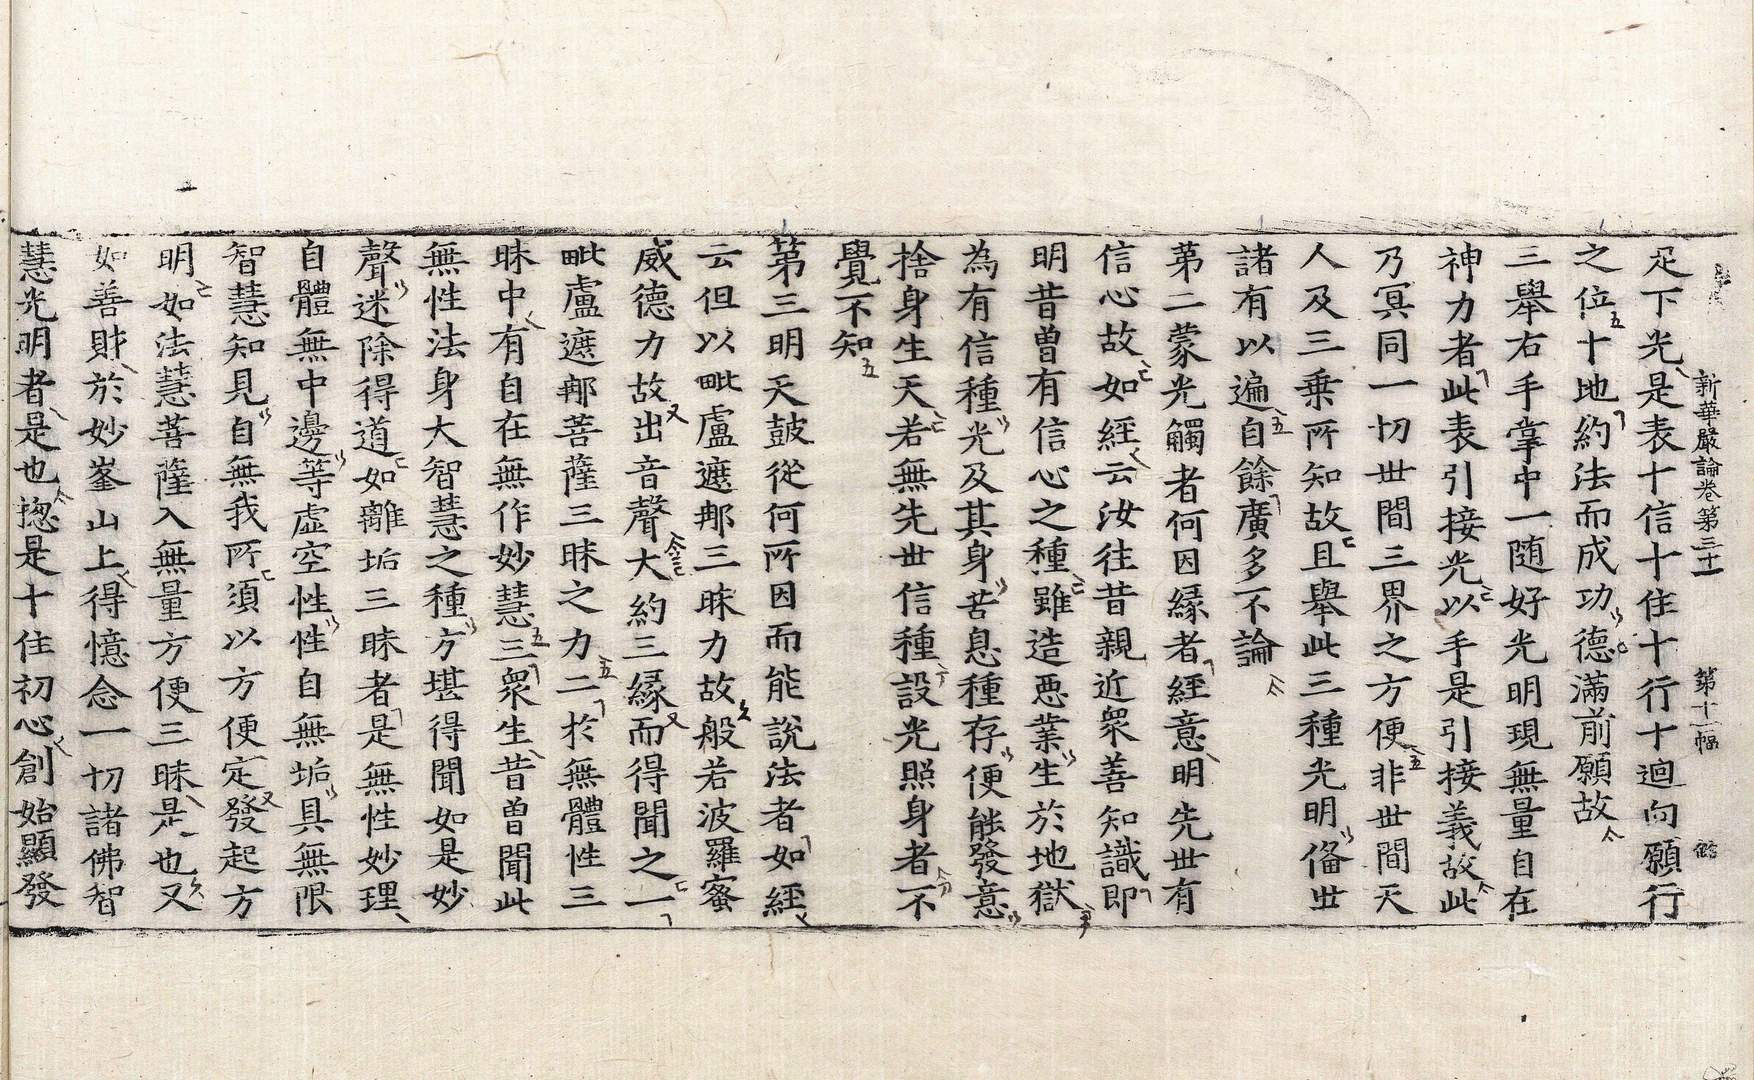 新華嚴論卷第三十一 第十二幅
足下光是表十信十住十行十迴向願行
之位十地約法而成功德滿前願故
三舉右手掌中一随好光明現無量自在
神力者此表引接光以手是引接義故此
乃冥同一切世間三界之方便非世間天
人及三乗所知故且舉此三種光明俻世
諸有以遍自餘廣多不論
第二蒙光觸者何因縁者經意明先世有
信心故如經云汝往昔親近衆善知識即
明昔曽有信心之種雖造惡業生於地獄
為有信種光及其身苦息種存便能發意
捨身生天若無先世信種設光照身者不
覺不知
第三明天鼓從何所因而能説法者如經
云但以毗盧遮那三昧力故般若波羅蜜
威德力故出音聲大約三縁而得聞之一
毗盧遮那菩薩三昧之力二於無體性三
昧中有自在無作妙慧三衆生昔曽聞此
無性法身大智慧之種方堪得聞如是妙
聲迷除得道如離垢三昧者是無性妙理
自體無中邊等虛空性性自無垢具無限
智慧知見自無我所須以方便定發起方
明如法慧菩薩入無量方便三昧是也又
如善財於妙峯山上得憶念一切諸佛智
慧光明者是也揔是十住初心創始顯發